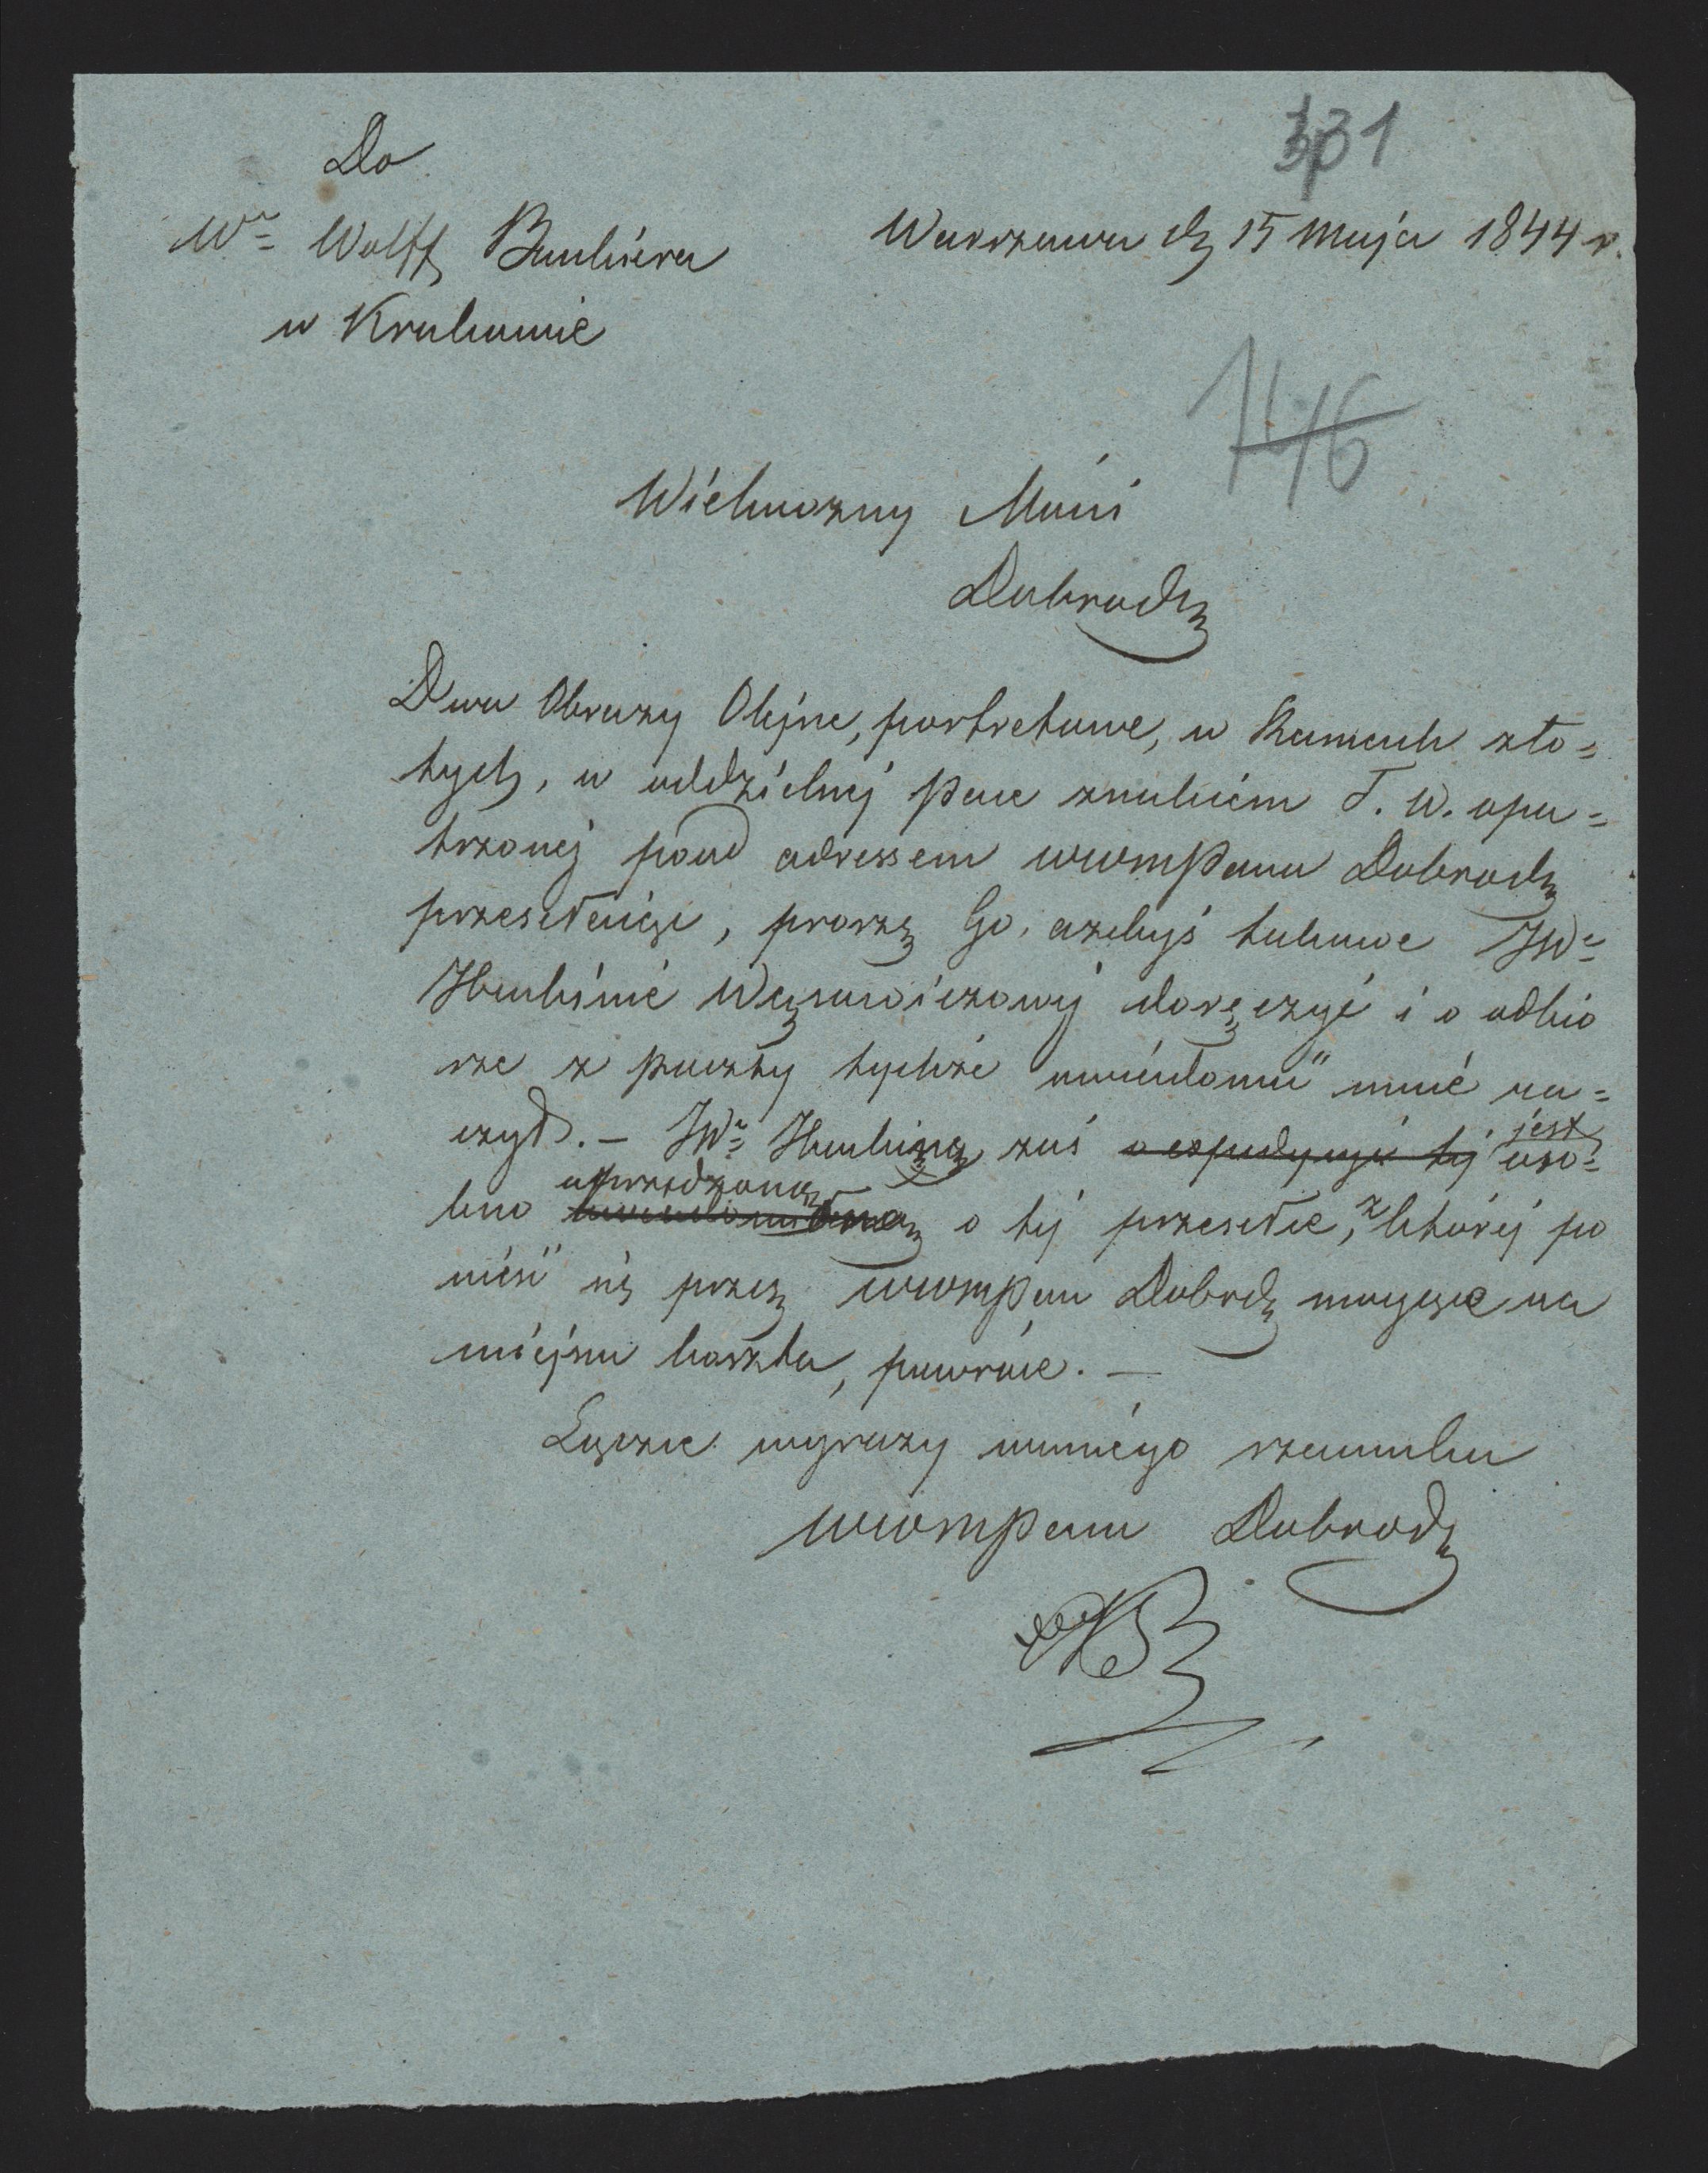 331
Do
Wo Wolff Bankiera
w Krakowie
Warszawa d 15 Maja 1844 r.
146
Wielmożny Mości
Dobrodz
Dwa Obrazy Olejne, portretowe, w Ramach zło=
tych, w oddzielnej pace znakiem T. W. opa=
trzonej pod adressem WWMPana Dobrodz
przesełając, proszę Go, ażebyś takowe JWe
Hrabinie Wąsowiczowej doręczyć i o odbio
rze z poczty tychże uwiadomić mnie ra=
czył. – JWa Hrabina zaś o expedycyi tej jest oso=
bno uwiadomioną uprzedzoną o tej przesełce, z której po
nieść się przez WWMPan Dobrodz mogące na
miejscu koszta, powróci. –
Łącze wyrazy winnego szacunku
WWMPana Dobrodz